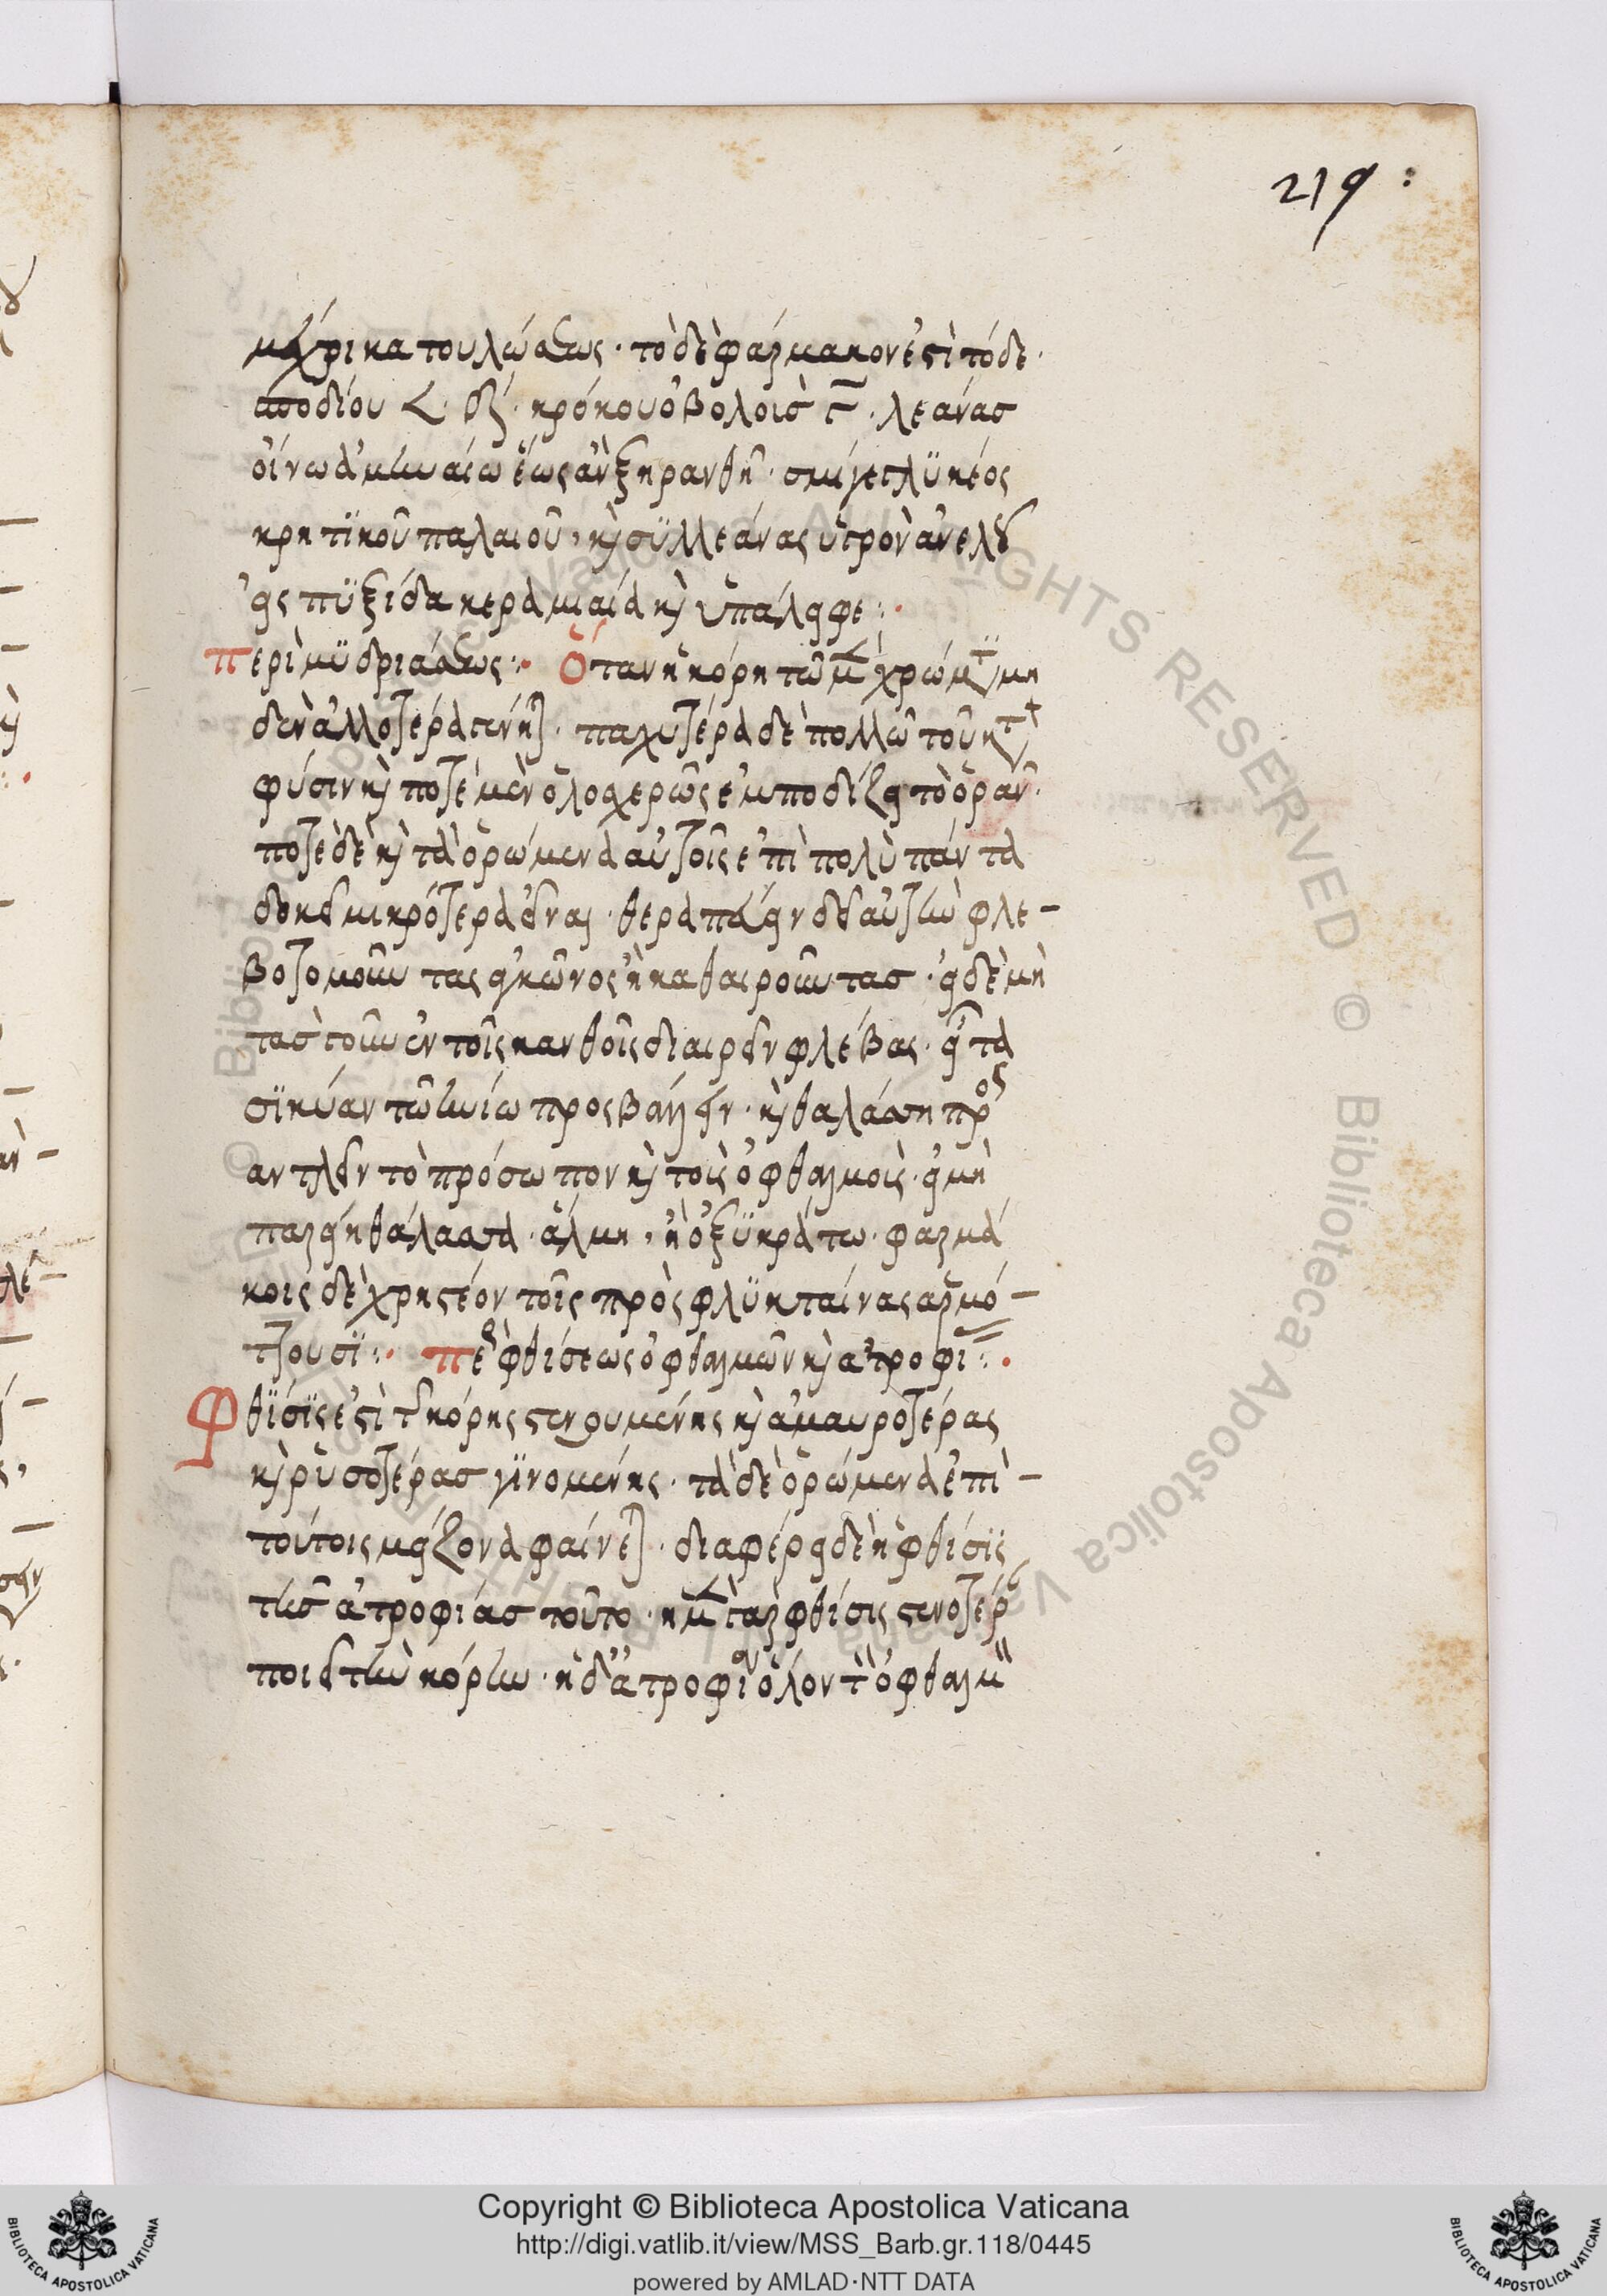 219 :
μέχρι κατουλώσεως · τὸ δὲ φάρμακον ἐστὶ τόδε ·
σποδίου κρόκου ὀβολοὺσ γ̅ · λεάνας
οἴνω ἀμιναίω ἕως ἂν ξηρανθῆ · γλϋκέος
κρητϊκοῦ παλαιοῦ · καὶ σϋλλεάνας ὕστερον ἀνελοῦ
εἰς πϋξίδα κεραμιαία καὶ ὑπάλειφε :·
περὶ μϋδριάσεως :· Ὅταν ἡ κόρη τῶ μὲν χρώματϊ μη
δὲν ἀλλοτέρα γένηται · παχυτέρα δὲ πολλῶ τοῦ κατὰ
φύσιν καὶ ποτὲ μὲν ὁλοχερῶς ἐμποδίζει τὸ ὁρᾶν ·
ποτὲ δὲ καὶ τὰ ὁρώμενα αὐτοῖς ἐπὶ πολὺ πάντα
δοκεῖ μικρότερα εἶναι · θεραπεύειν δεῖ αὐτὴν φλε-
βοτομοῦντας ἀγκῶνος ἢ καθαίροντας · εἰ δὲ μὴ
τὰσ τοῦν ἐν τοῖς κανθοῖς διαιρεῖν φλέβας · εἶτα
σϊκύαν τῶ ἰνίω προςβάλλειν · καὶ θαλάσση προς
αντλεῖν τὸ πρόσωπον καὶ τοὺς ὀφθαλμοὺς · εἰ μὴ
παρείη θάλασσα · ἅλμη · ἢ ὀξϋκράτω · φαρμά
κοις δὲ χρηστέον τοῖς πρὸς φλϋκταίνας αρμό-
ττουσϊ :· περὶ φθίσεως ὀφθαλμῶν καὶ ἀτροφί :·
Φθΐσϊς ἐστὶ τῆς κόρης στενουμένης καὶ ἀμαυροτέρας
καὶ ῥυσοτέρασ γϊνομένης · τὰ δὲ ὁρώμενα ἐπὶ-
τούτοις μείζονα φαίνεται · διαφέρει δὲ ἡ φθίσϊς
τῆσ ἀτροφίασ τοῦτο · ἡ μὲν γὰρ φθίσις στενοτέραν
ποιεῖ τὴν κόρην · ἡ δὲ ἀτροφία ὅλον τὸν ὀφθαλμὸν
Copyright © Biblioteca Apostolica Vaticana
http://digi.vatlib.it/view/MSS_Barb.gr.118/0445
powered by AMLAD·NTT DATA